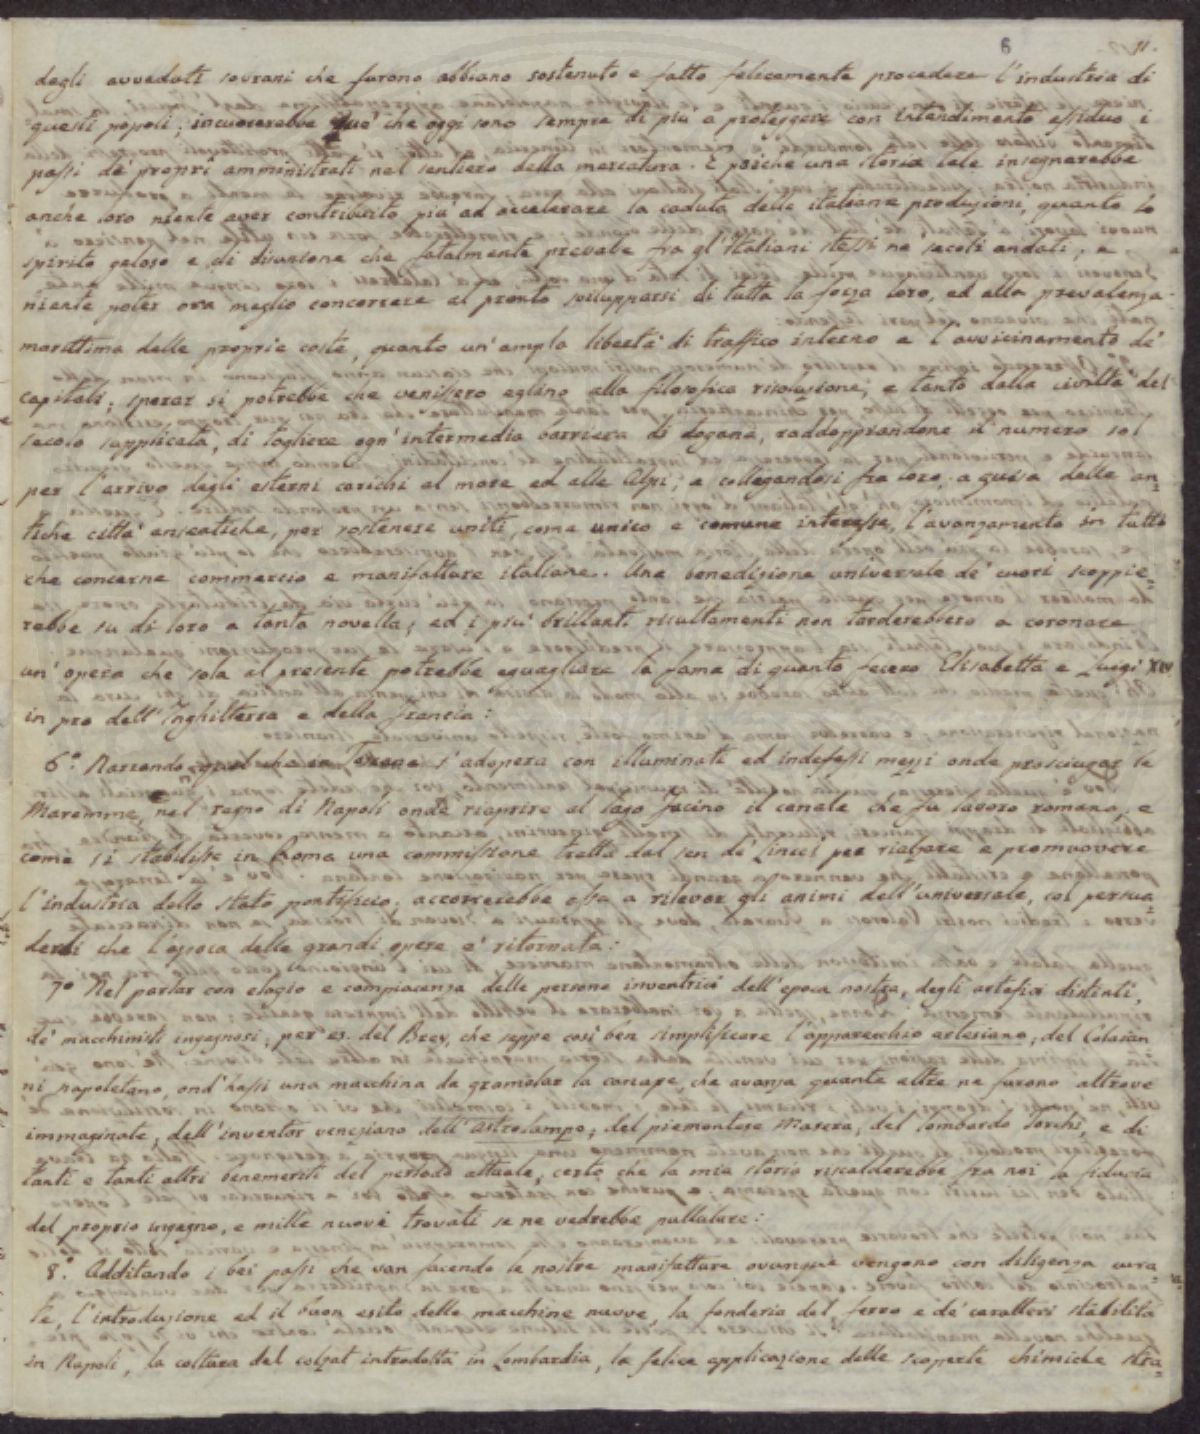 6 11.
degli avveduti sovrani che furono abbiano sostenuto e fatto felicemente procedere l'industria di
questi popoli; incuorerebbe que' che oggi sono sempre di più a proteggere con intendimento assiduo i
passi de' propri amministrati nel sentiero della mercatura. E poiche una storia tale insegnarebbe
anche loro niente aver contribuito più ad accelerare la caduta delle italiane produzioni, quanto lo
spirito geloso e di divisione che fatalmente prevalse fra gl'Italiani stessi ne' secoli andati; e
niente poter ora meglio concorrere al pronto svilupparsi di tutta la forza loro, ed alla prevalenza
marittima delle proprie coste, quanto un'ampla libertà di traffico interno e l'avvicinamento de'
capitali; sperar si potrebbe che venissero eglino alla filosofica risoluzione, e tanto dalla civiltà del
secolo supplicata, di togliere ogn'intermedia barriera di dogana, raddoppiandone il numero sol
per l'arrivo degli esterni carichi al mare ed alle Alpi; e collegandosi fra loro a guisa delle an=
tiche città anseatiche, per sostenere uniti, come unico e comune interesse, l'avanzamento in tutto
che concerne commercio e manifatture italiane. Una benedizione universale de' cuori scoppie=
rebbe su di loro a tanta novella; ed i più brillanti risultamenti non tarderebbero a coronare
un'opera che sola al presente potrebbe eguagliare la fama di quanto fecero Elisabetta e Luigi XIV
in pro dell'Inghilterra e della Francia:
6.° Narrando qual che in Toscana s'adopera con illuminati ed indefessi mezzi onde prosciugar le
Maremme, nel regno di Napoli onde riaprire al lago fucino il canale che fu lavoro romano, e
come si stabilisse in Roma una commissione tratta dal sen de' Lincei per rialzare e promuovere
l'industria dello stato pontificio; accorrerebbe essa a rilevar gli animi dell'universale, col persua=
dersi che l'epoca delle grandi opere e' ritornata:
7.° Nel parlar con elogio e compiacenza delle persone inventrici dell'epoca nostra, degli artefici distinti,
de' macchinisti ingegnosi; per es. del Brey, che seppe così ben simplificare l'apparecchio artesiano; del Catarin
ni napoletano, ond'hassi una macchina da gramolar la canape, che avanza quante altre ne furono altrove
immaginate; dell'inventor veneziano dell'Astrolampo; del piemontese Masera; del lombardo Torchi, e di
tanti e tanti altri benemeriti del periodo attuale, certo che la mia storia riscalderebbe fra noi la fiducia
del proprio ingegno, e mille nuovi trovati se ne vedrebbe pullulare:
8.° Additando i bei passi che van facendo le nostre manifatture ovunque vengono con diligenza cura=
te, l'introduzione ed il buon esito delle macchine nuove, la fonderia del ferro e de' caratteri stabilita
in Napoli, la coltura del colzat introdotta in Lombardia, la felice applicazione delle scoperte chimiche stra=